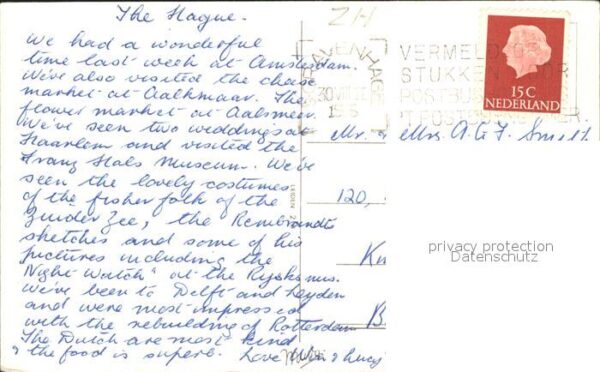 The Hague.
We had a wonderful
time last week at Amsterdam.
We've also visited the cheese
market at Aalkmaar. The
flower market at Aalsmeer.
We've seen two weddings at
Haarlem and visited the
Franz Hals Museum. We've
seen the lovely costumes
of the fisher folk of the
Zuider Zee, the Rembrandt
sketches and some of his
pictures including the
"Night Watch" at the Ryksmus.
We've been to Delft and Leyden
and were most impressed
with the rebuilding of Rotterdam
The Dutch are most kind
& the food is superb. Love & Lucy
ZH
'S GRAVENHAGE
30 VII
VERMELD OP
STUKKEN VOOR
POSTBUS
'T POSTBUSNUMMER
15C
NEDERLAND
Mr. & Mrs. A. G. Smith
120,
Kn
B
LEIDEN
privacy protection
Datenschutz